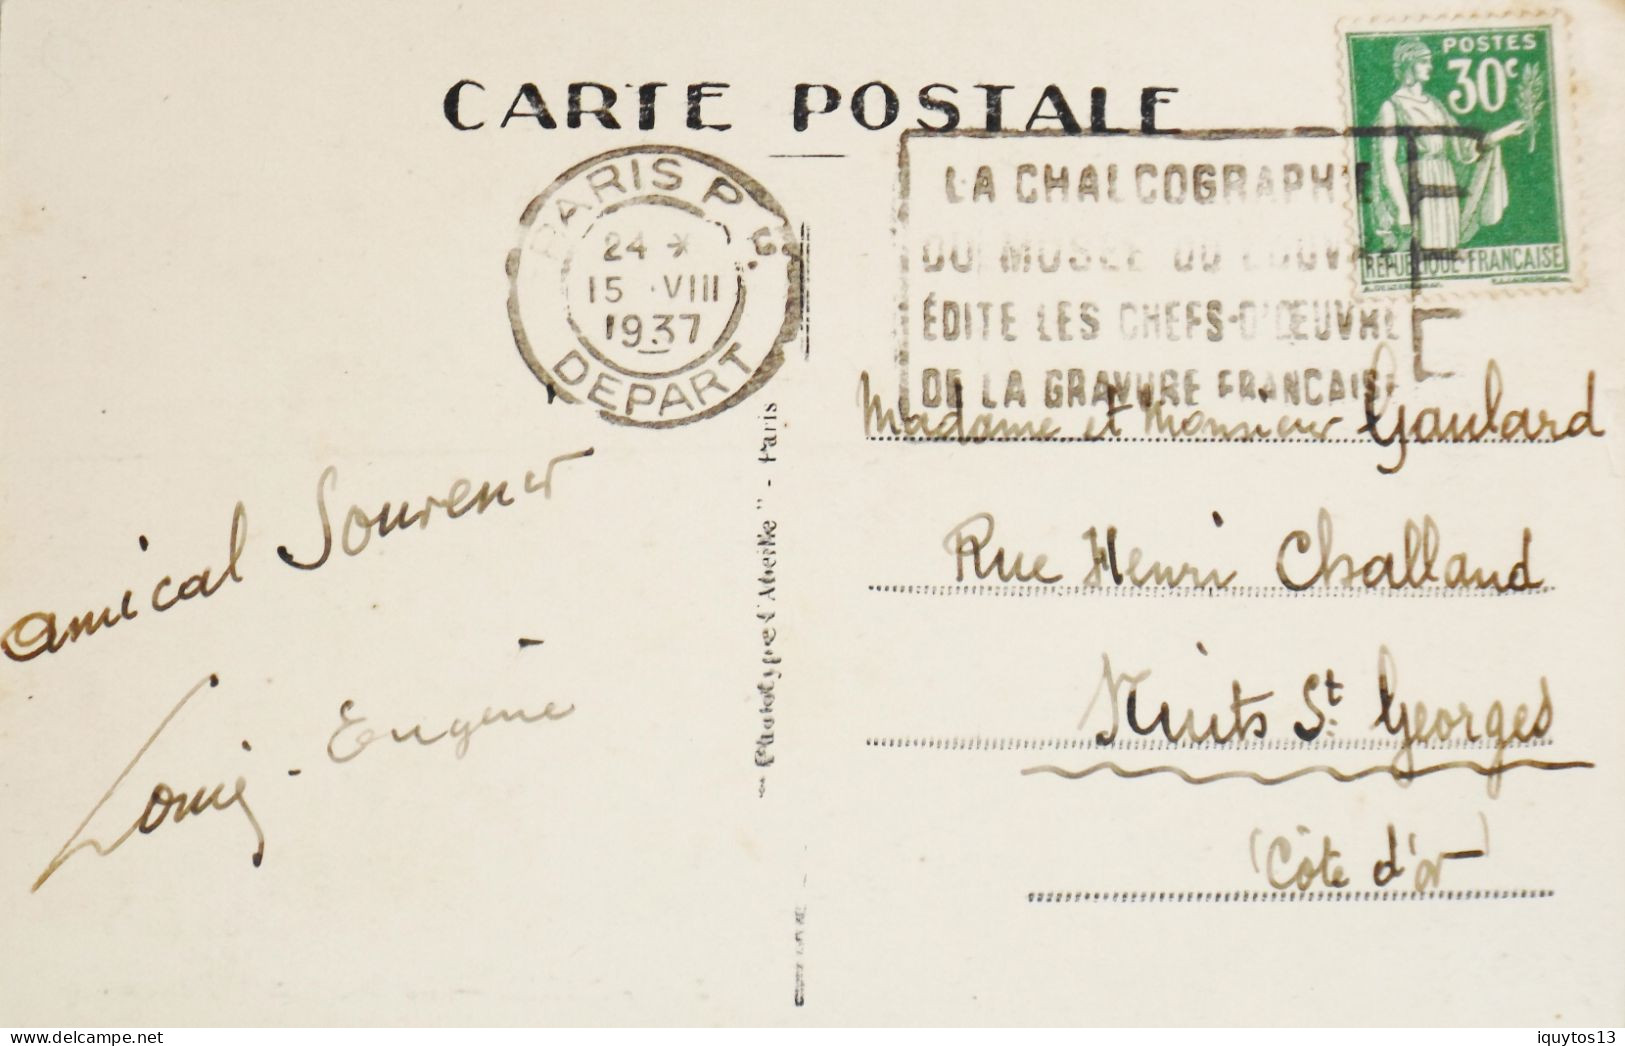 CARTE POSTALE
POSTES
30c
REPUBLIQUE FRANÇAISE
PARIS P.
24 *
15 VIII
1937
DEPART
LA CHALCOGRAPHIE
DU MUSÉE DU LOUVRE
ÉDITE LES CHEFS-D'ŒUVRE
DE LA GRAVURE FRANÇAISE
Amical Souvenir
Louis-Eugène
"Phototypie L'Abeille" - Paris
Madame et Monsieur Gaulard
Rue Henri Challand
Nuits St. Georges
(Côte d'or)
Delcampe.net
iquytos13